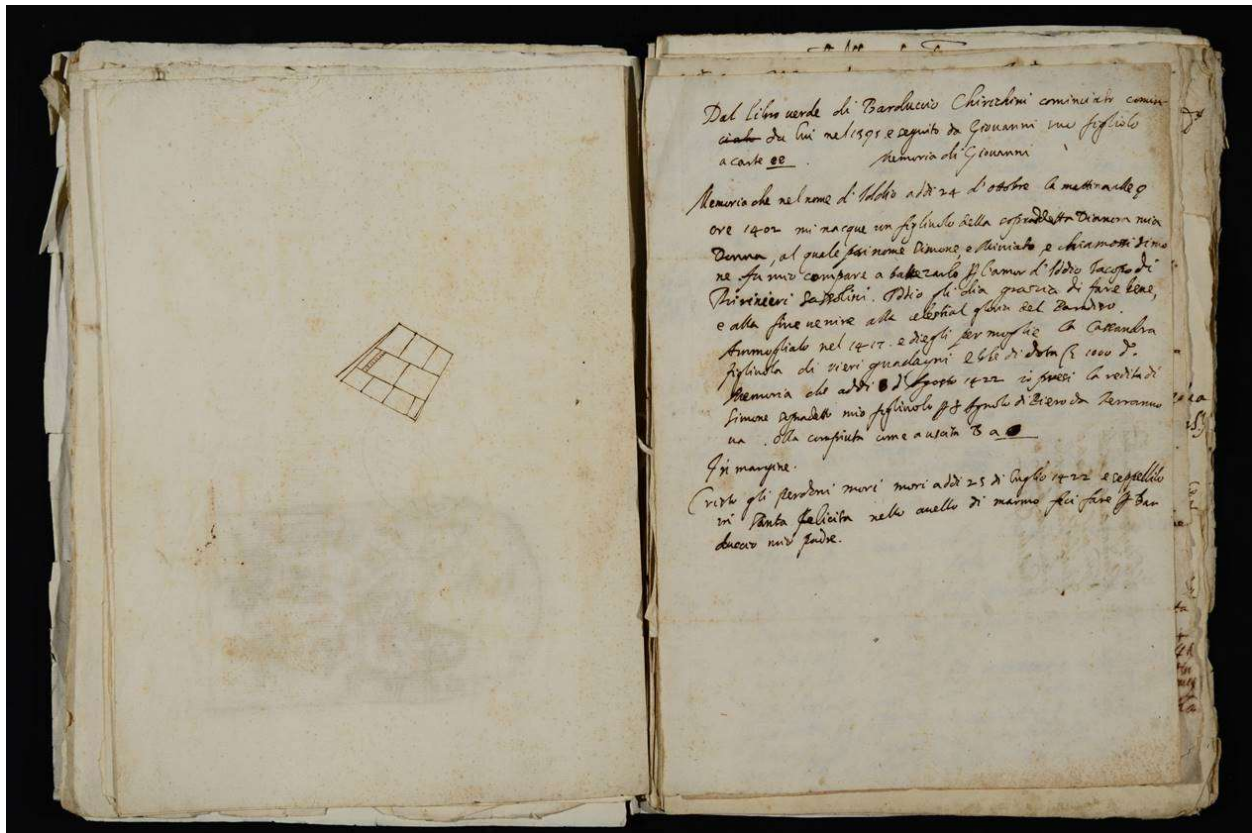 Dal Libro verde di Barduccio Chirichini cominciato comin-
ciato da lui nel 1391 e seguito da Giovanni suo figliolo
a carte ee . Memoria di Giovanni
Memoria che nel nome d'Iddio addi 24 d'ottobre la mattina alle 9
ore 1402 mi nacque un figliuolo della sopradetta Dianora mia
Donna, al quale posi nome Simone, e Miniato, e chiamossi Simo
ne fu mio compare a battezarlo p l'amor d'Iddio Iacopo di
Sassolini. Iddio gli dia grazia di fare bene,
e alla fine venire alla celestial gloria del Paradiso.
Ammogliato nel 1417. e diegli per moglie la Cassandra
figliuola di vieri guadagni ebbe di dota 1000 d.
Memoria che addi 8 d'Agosto 1422 io presi la redita di
Simone sopradetto mio figliuolo p Agnolo di Piero da Terranuo
va . come a uscita B a
In margine.
Cristo gli perdoni mori mori addi 25 di luglio 1422 e seppellilo
in Santa Felicita nello avello di marmo feci fare p Bar
duccio mio padre.